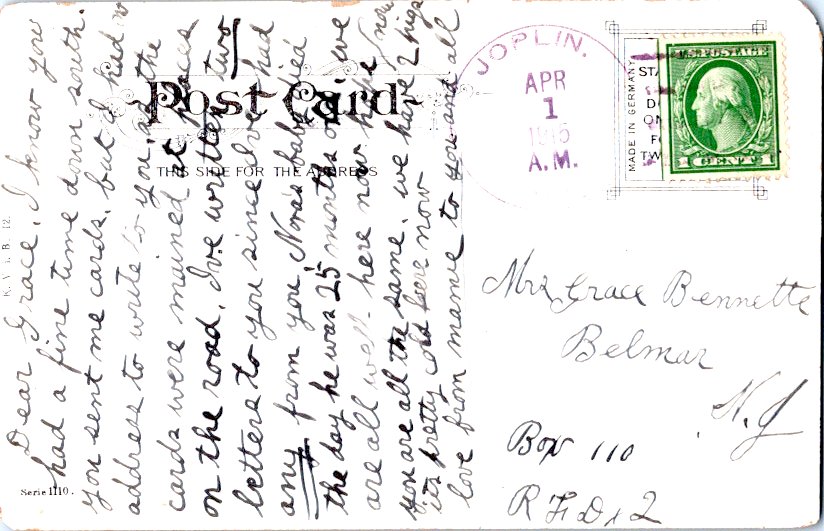 Dear Grace, I know you
had a fine time down south.
you sent me cards, but I had no
address to write to you, as the
cards were mained at places
on the road, I've written two
letters to you since I've had
any from you, Noras baby died
the day he was 25 months old, we
are all well here now hope
you are all the same, we have 2 pigs now
its pretty cold here now
love from mamie to you and all
Post Card
THIS SIDE FOR THE ADDRESS
K. V. I. B. 12
Serie 1110.
JOPLIN.
APR
1
A.M.
MADE IN GERMANY
STA
D
ON
F
TW
U.S. POSTAGE
1 CENT 1
Mrs Grace Bennette
Belmar
N.J
Box 110
R F D x 2